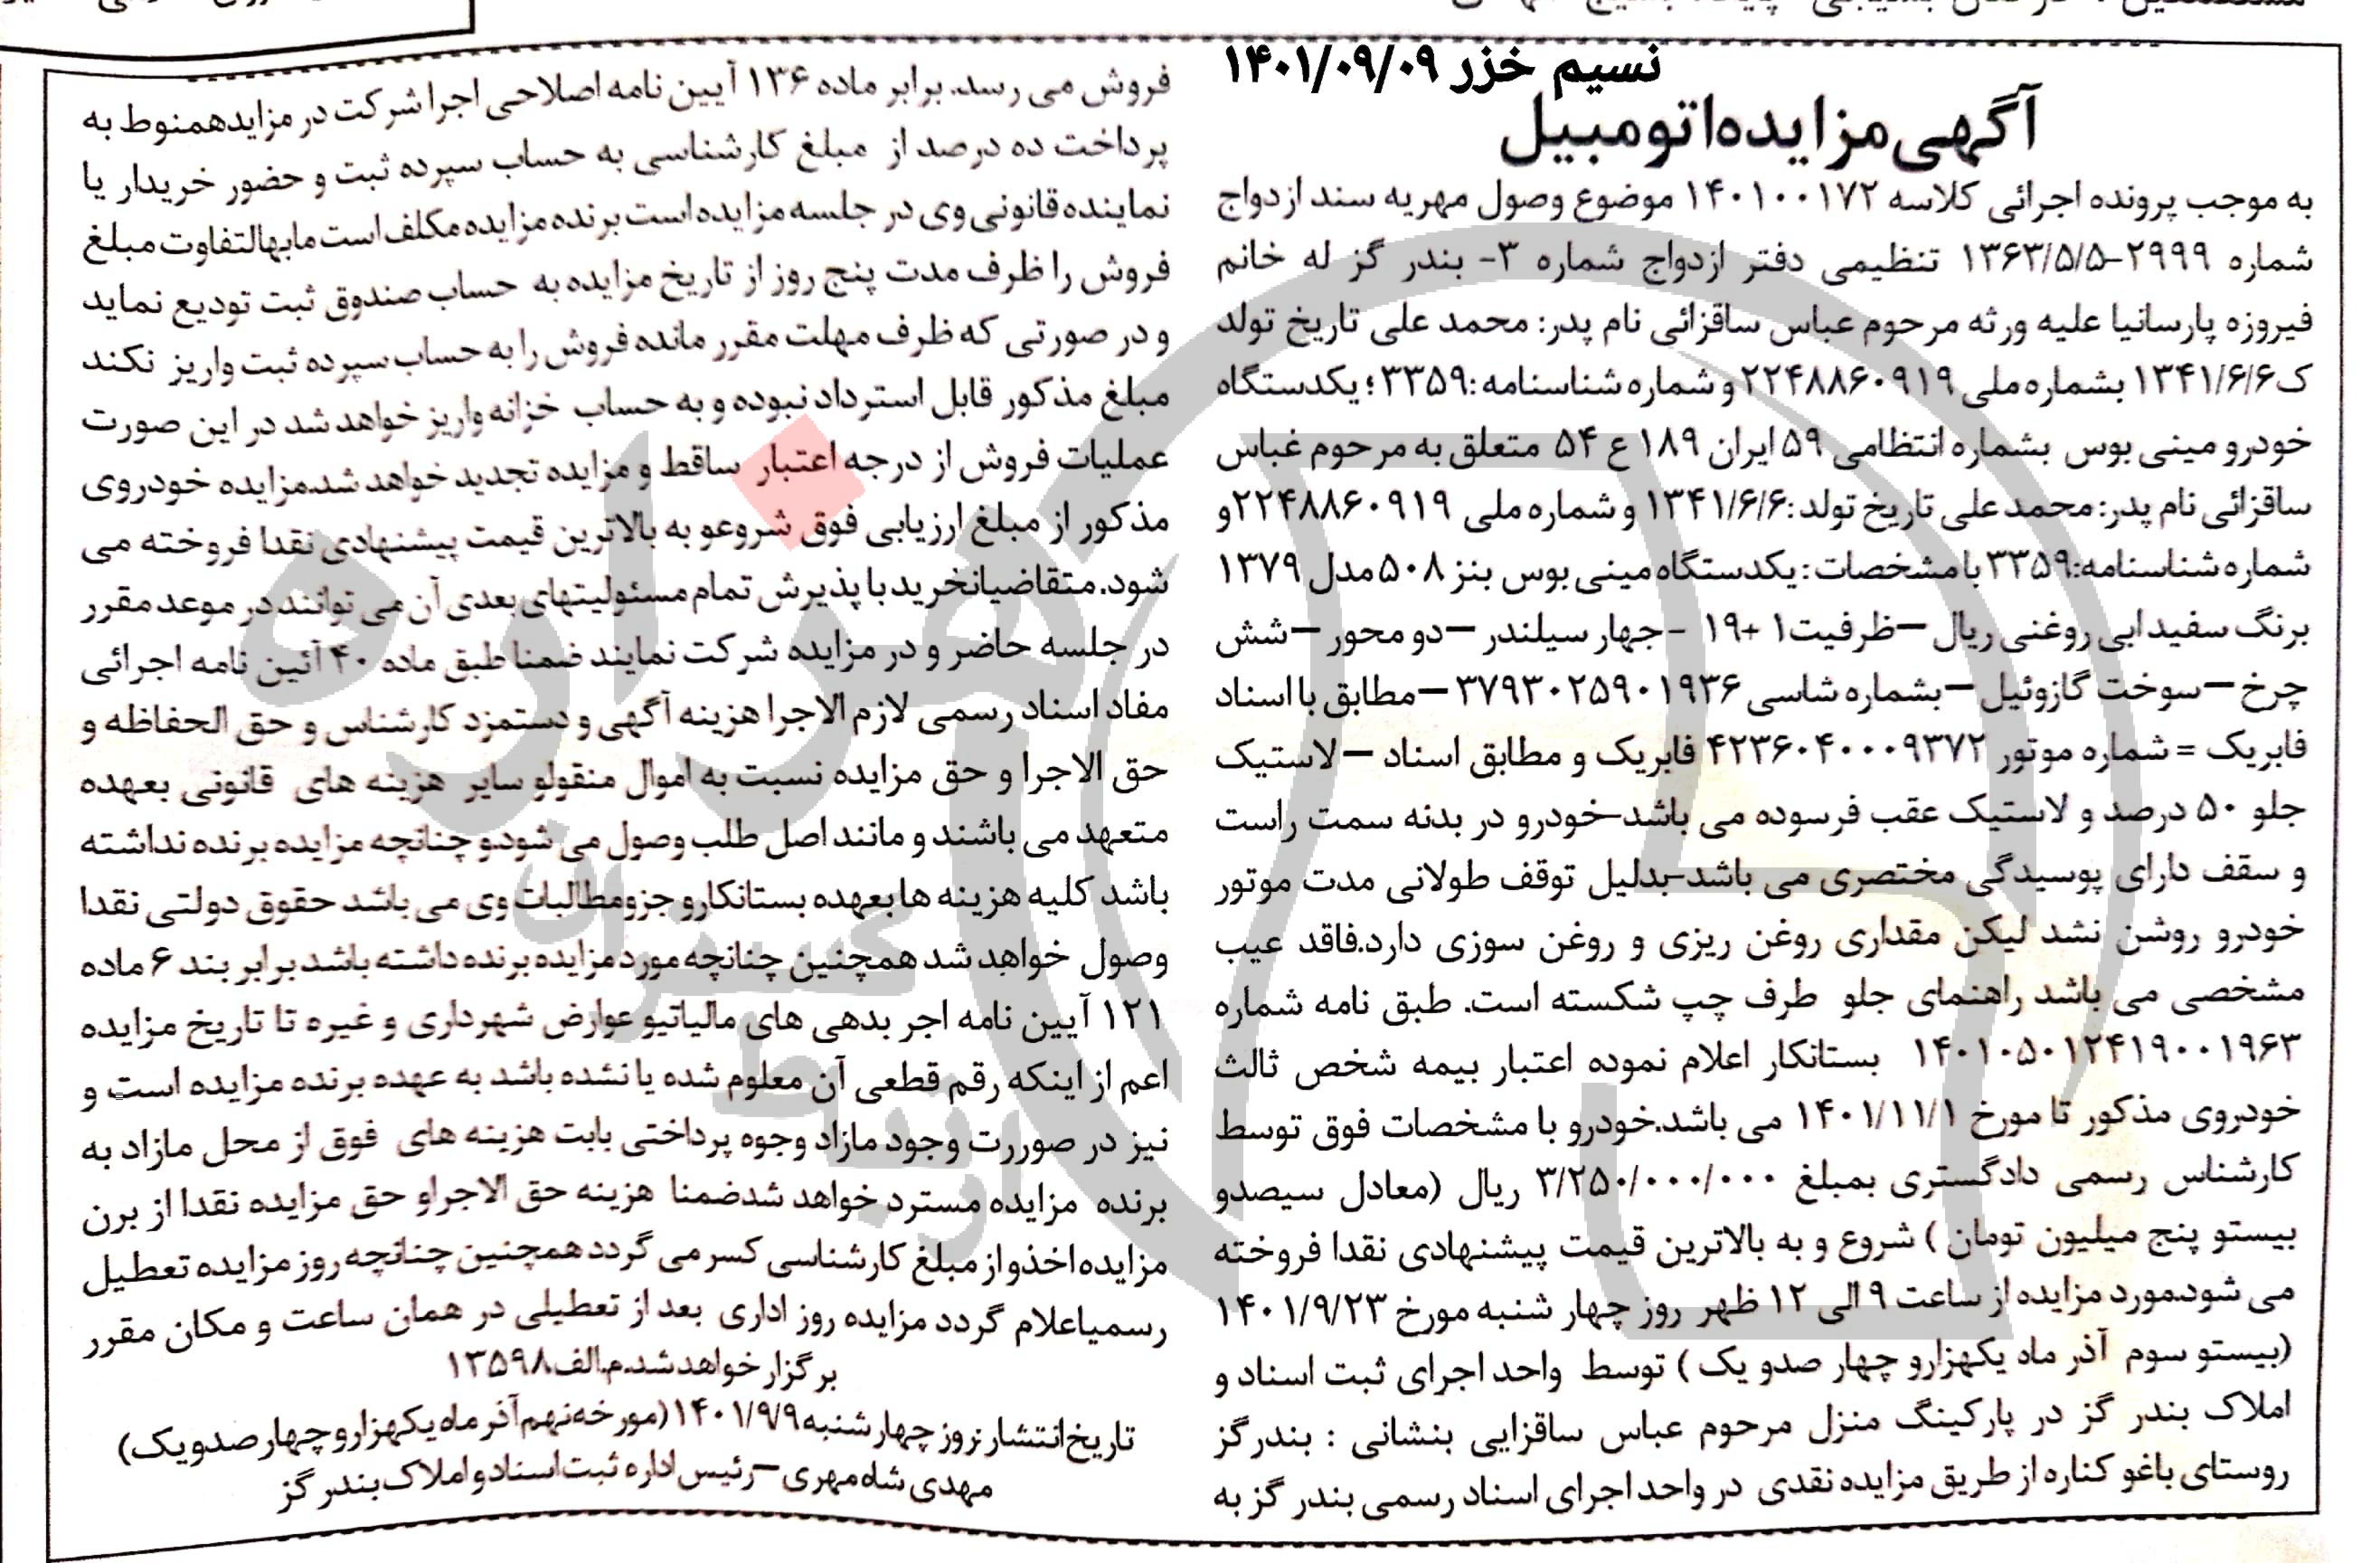 نسیم خزر ۱۴۰۱/۰۹/۰۹
آگهی مزایده اتومبیل
به موجب پرونده اجرائی کلاسه ۱۴۰۱۰۰۱۷۲ موضوع وصول مهریه سند ازدواج
شماره ۲۹۹۹-۱۳۶۳/۵/۵ تنظیمی دفتر ازدواج شماره ۳- بندر گز له خانم
فیروزه پارسانیا علیه ورثه مرحوم عباس ساقزائی نام پدر: محمد علی تاریخ تولد
ک۱۳۴۱/۶/۶ بشماره ملی ۲۲۴۸۸۶۰۹۱۹ و شماره شناسنامه :۳۳۵۹ ؛ یکدستگاه
خودرو مینی بوس بشماره انتظامی ۵۹ ایران ۱۸۹ ع ۵۴ متعلق به مرحوم غباس
ساقزائی نام پدر: محمد علی تاریخ تولد :۱۳۴۱/۶/۶ و شماره ملی ۲۲۴۸۸۶۰۹۱۹و
شماره شناسنامه:۳۳۵۹ با مشخصات : یکدستگاه مینی بوس بنز ۵۰۸ مدل ۱۳۷۹
برنگ سفید ابی روغنی ریال – ظرفیت۱ +۱۹ -جهار سیلندر – دو محور – شش
چرخ – سوخت گازوئیل – بشماره شاسی ۳۷۹۳۰۲۵۹۰۱۹۳۶ – مطابق با اسناد
فابریک = شماره موتور ۴۲۳۶۰۴۰۰۰۹۳۷۲ فابریک و مطابق اسناد – لاستیک
جلو ۵۰ درصد و لاستیک عقب فرسوده می باشد-خودرو در بدنه سمت راست
و سقف دارای پوسیدگی مختصری می باشد-بدلیل توقف طولانی مدت موتور
خودرو روشن نشد لیکن مقداری روغن ریزی و روغن سوزی دارد.فاقد عیب
مشخصی می باشد راهنمای جلو طرف چپ شکسته است. طبق نامه شماره
۱۴۰۱۰۵۰۱۲۴۱۹۰۰۱۹۶۳ بستانکار اعلام نموده اعتبار بیمه شخص ثالث
خودروی مذکور تا مورخ ۱۴۰۱/۱۱/۱ می باشد.خودرو با مشخصات فوق توسط
کارشناس رسمی دادگستری بمبلغ ۳/۲۵۰/۰۰۰/۰۰۰ ریال (معادل سیصدو
بیستو پنج میلیون تومان ) شروع و به بالاترین قیمت پیشنهادی نقدا فروخته
می شود.مورد مزایده از ساعت ۹ الی ۱۲ ظهر روز چهار شنبه مورخ ۱۴۰۱/۹/۲۳
(بیستو سوم آذر ماه یکهزارو چهار صدو یک ) توسط واحد اجرای ثبت اسناد و
املاک بندر گز در پارکینگ منزل مرحوم عباس ساقزایی بنشانی : بندرگز
روستای باغو کناره از طریق مزایده نقدی در واحد اجرای اسناد رسمی بندر گز به
فروش می رسد. برابر ماده ۱۳۶ آیین نامه اصلاحی اجرا شرکت در مزایدهمنوط به
پرداخت ده درصد از مبلغ کارشناسی به حساب سپرده ثبت و حضور خریدار یا
نماینده قانونی وی در جلسه مزایده است برنده مزایده مکلف است مابهالتفاوت مبلغ
فروش را ظرف مدت پنج روز از تاریخ مزایده به حساب صندوق ثبت تودیع نماید
و در صورتی که ظرف مهلت مقرر مانده فروش را به حساب سپرده ثبت واریز نکند
مبلغ مذکور قابل استرداد نبوده و به حساب خزانه واریز خواهد شد در این صورت
عملیات فروش از درجه اعتبار ساقط و مزایده تجدید خواهد شد.مزایده خودروی
مذکور از مبلغ ارزیابی فوق شروعو به بالاترین قیمت پیشنهادی نقدا فروخته می
شود. متقاضیانخرید با پذیرش تمام مسئولیتهای بعدی آن می توانند در موعد مقرر
در جلسه حاضر و در مزایده شرکت نمایند ضمنا طبق ماده ۴۰ آئین نامه اجرائی
مفاد اسناد رسمی لازم الاجرا هزینه آگهی و دستمزد کارشناس و حق الحفاظه و
حق الاجرا و حق مزایده نسبت به اموال منقولو سایر هزینه های قانونی بعهده
متعهد می باشند و مانند اصل طلب وصول می شودو چنانچه مزایده برنده نداشته
باشد کلیه هزینه ها بعهده بستانکارو جزومطالبات وی می باشد حقوق دولتی نقدا
وصول خواهد شد همچنین چنانچه مورد مزایده برنده داشته باشد برابر بند ۶ ماده
۱۲۱ آیین نامه اجر بدهی های مالیاتیو عوارض شهرداری و غیره تا تاریخ مزایده
اعم از اینکه رقم قطعی آن معلوم شده یا نشده باشد به عهده برنده مزایده است و
نیز در صوررت وجود مازاد وجوه پرداختی بابت هزینه های فوق از محل مازاد به
برنده مزایده مسترد خواهد شدضمنا هزینه حق الاجراو حق مزایده نقدا از برن
مزایده اخذو از مبلغ کارشناسی کسر می گردد همچنین چنانچه روز مزایده تعطیل
رسمیاعلام گردد مزایده روز اداری بعد از تعطیلی در همان ساعت و مکان مقرر
بر گزار خواهد شد.م.الف۱۳۵۹۸
تاریخ انتشار :روز چهار شنبه ۱۴۰۱/۹/۹ (مورخه نهم آذر ماه یکهزارو چهار صدو یک)
مهدی شاه مهری – رئیس اداره ثبت اسناد و املاک بندر گز